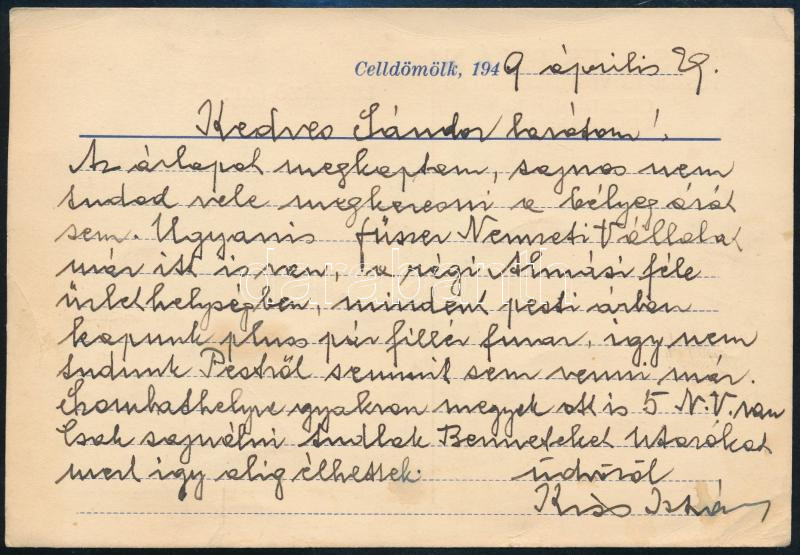 Celldömölk, 1949 április 29.
Kedves Sándor barátom!
Az árlapot megkaptam, sajnos nem
tudod vele megkeresni a bélyeg árát
sem. Ugyanis füszer Nemzeti Vállalat
már itt is van, a régi Almási féle
üzlethelységben, mindent pesti árban
kapunk plusz pár fillér fuvar, igy nem
tudunk Pestről semmit sem venni már.
Szombathelyre gyakran megyek ott is 5 N.V. van
Csak sajnálni tudlak Benneteket Utazókat
mert igy alig élhettek. üdvözöl
Kiss István
darabanth